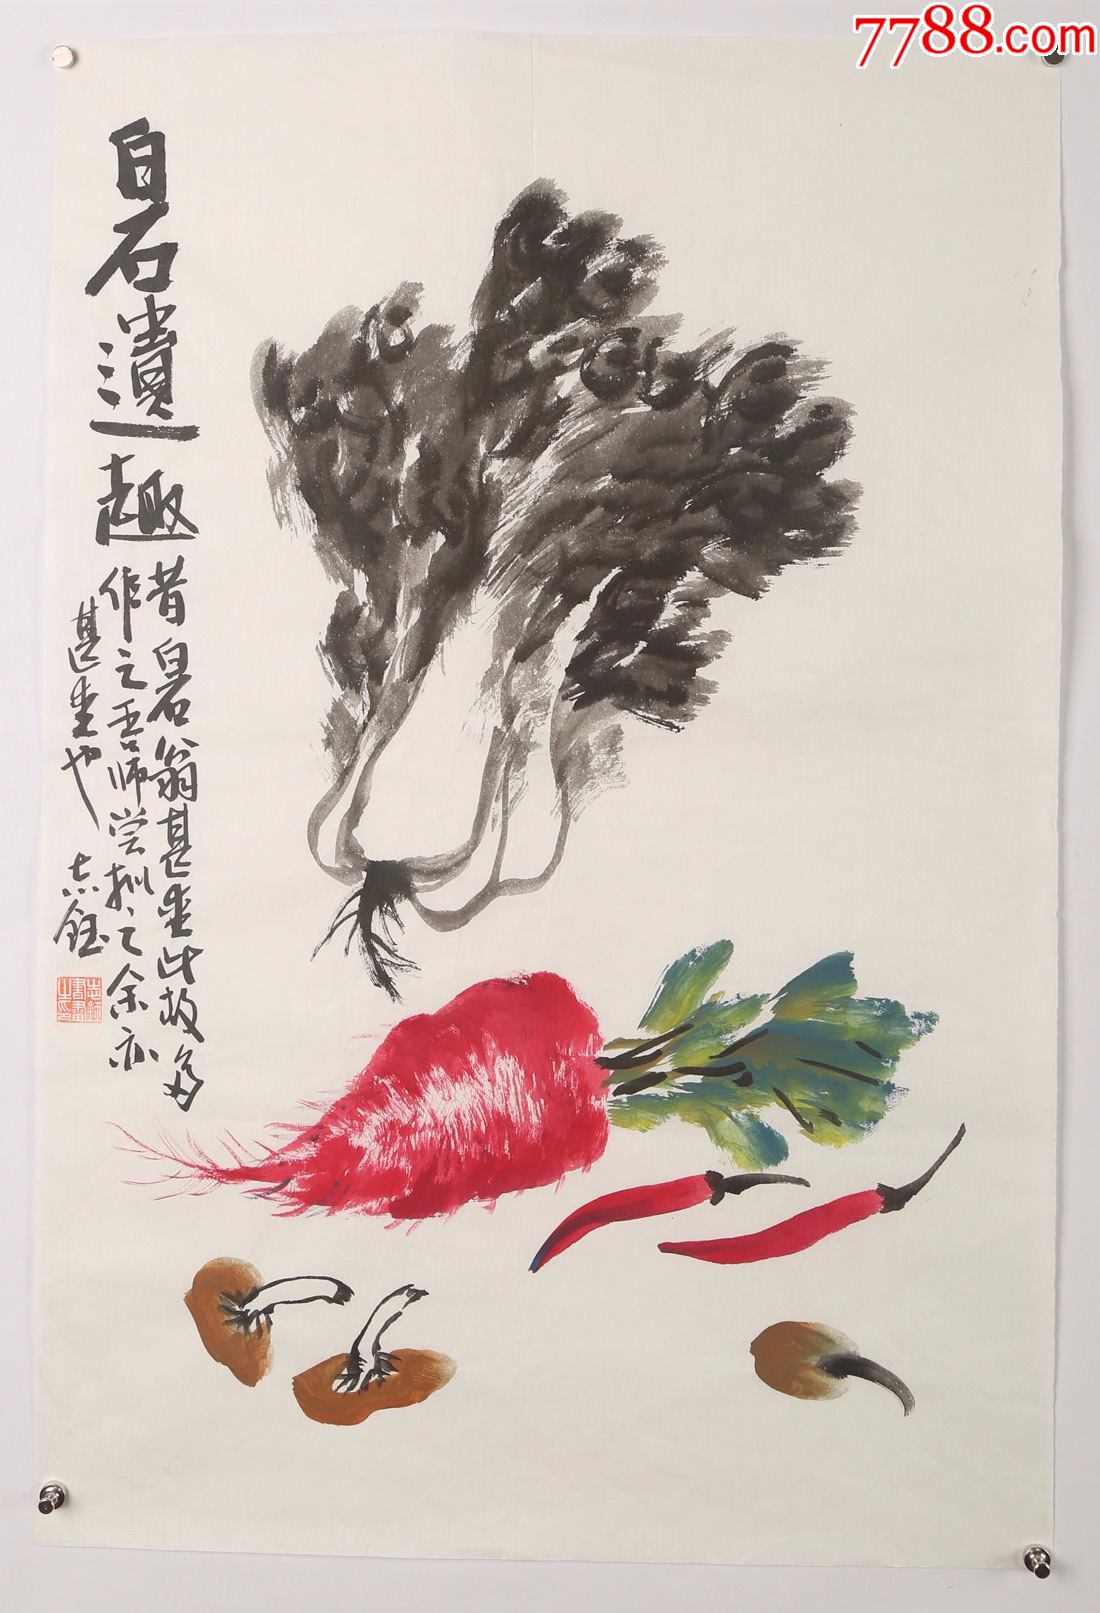 7788.com
白石遗趣
昔白石翁甚爱此故多
作之吾师尝拟之余亦
甚爱也
志钰